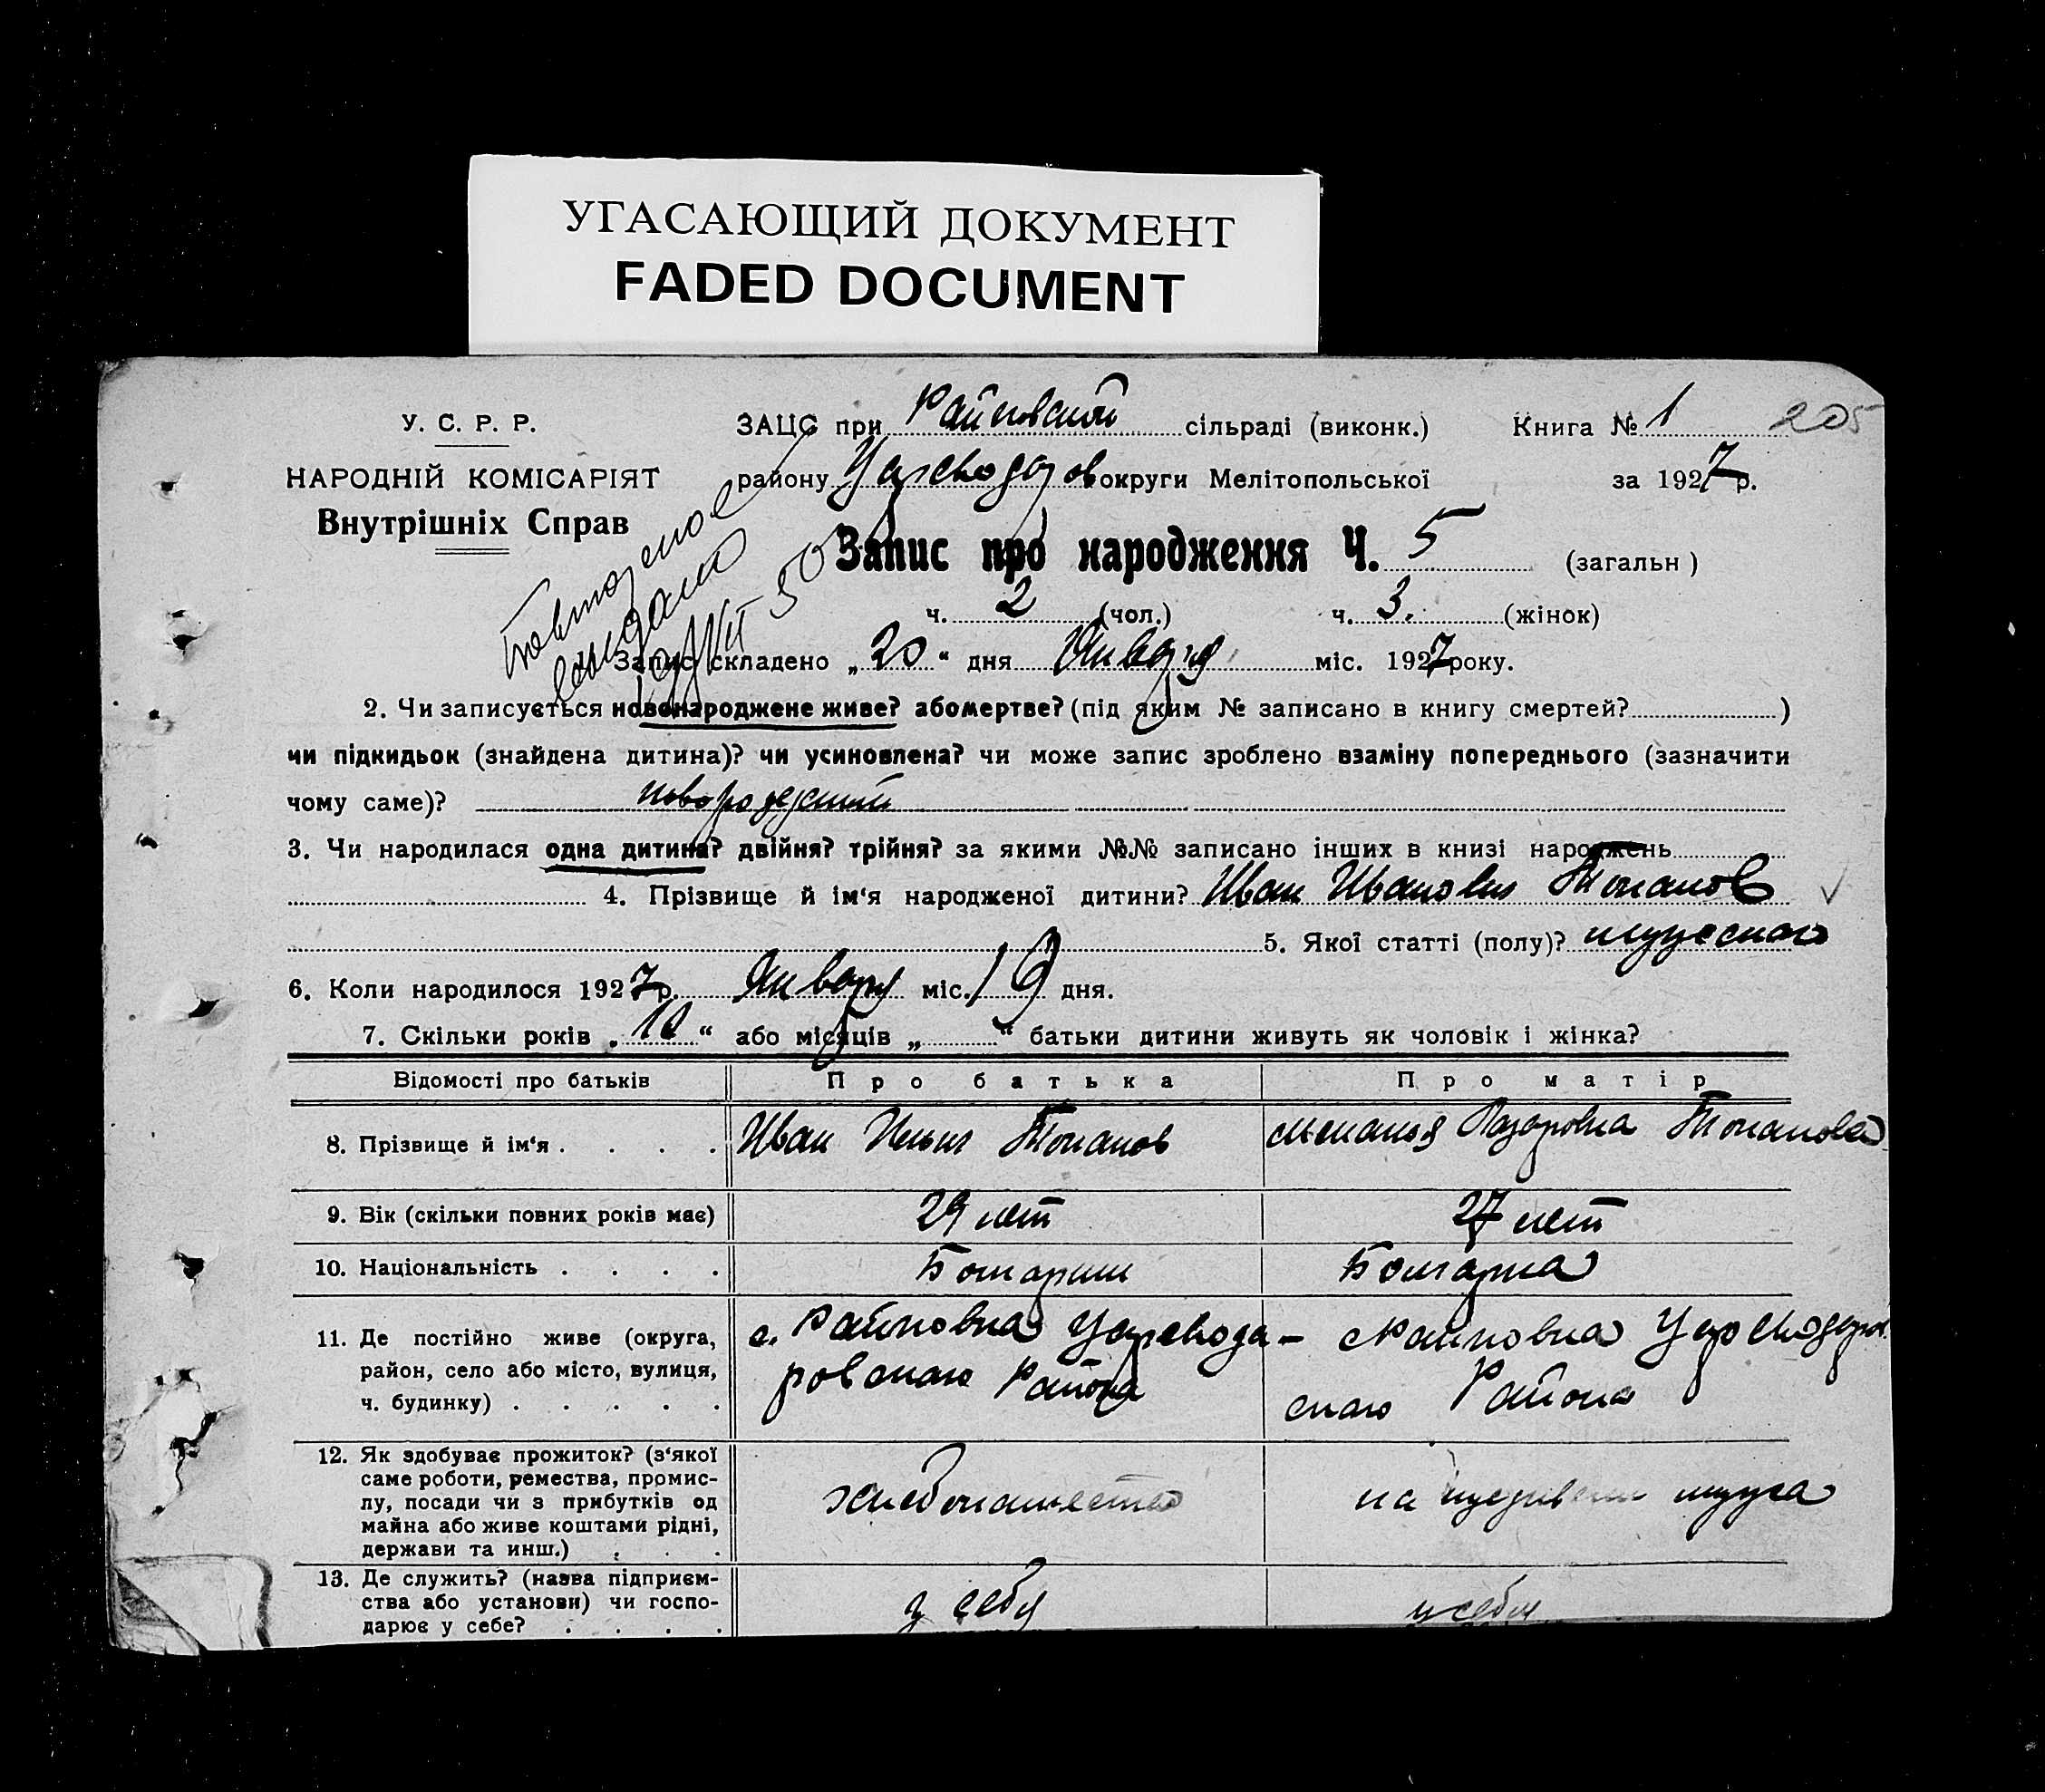 УГАСАЮЩИЙ ДОКУМЕНТ
FADED DOCUMENT
У. С. Р. Р.
НАРОДНІЙ КОМІСАРІЯТ
Внутрішніх Справ
ЗАЦС при Райновской сільраді (виконк.) Книга № 1 205
району Цареводаров округи Мелітопольської за 1927 р.
Запис про народження Ч. 5 (загальн)
ч. 2 (чол.) ч. 3. (жінок)
Запис складено „20" дня Января міс. 1927 року.
2. Чи записується новонароджене живе? або мертве? (під яким № записано в книгу смертей? )
чи підкидьок (знайдена дитина)? чи усиновлена? чи може запис зроблено взаміну попереднього (зазначити
чому саме)? новорожденный
3. Чи народилася одна дитина? двійня? трійня? за якими №№ записано інших в книзі народжень
4. Прізвище й ім'я народженої дитини? Иван Иванович Топалов
5. Якої статті (полу)? мужеского
6. Коли народилося 1927 р. Января міс. 19 дня.
7. Скільки років „10" або місяців „ " батьки дитини живуть як чоловік і жінка?
Відомості про батьків Про батька Про матір
8. Прізвище й ім'я . . . . Иван Ильич Топалов Мелания Лазаровна Топалова
9. Вік (скільки повних років має) 29 лет 27 лет
10. Національність . . . . Болгарин Болгарка
11. Де постійно живе (округа,
район, село або місто, вулиця,
ч. будинку) . . . . .
с. Райновка Царевода-
ровского Района
с Райновка
ского Района
12. Як здобуває прожиток? (з'якої
саме роботи, ремества, промис-
лу, посади чи з прибутків од
майна або живе коштами рідні,
держави та инш.) . . .
хлебопашество
на иждивении мужа
13. Де служить? (назва підприєм-
ства або установи) чи госпо-
дарює у себе? . . . .
у себя
у себя